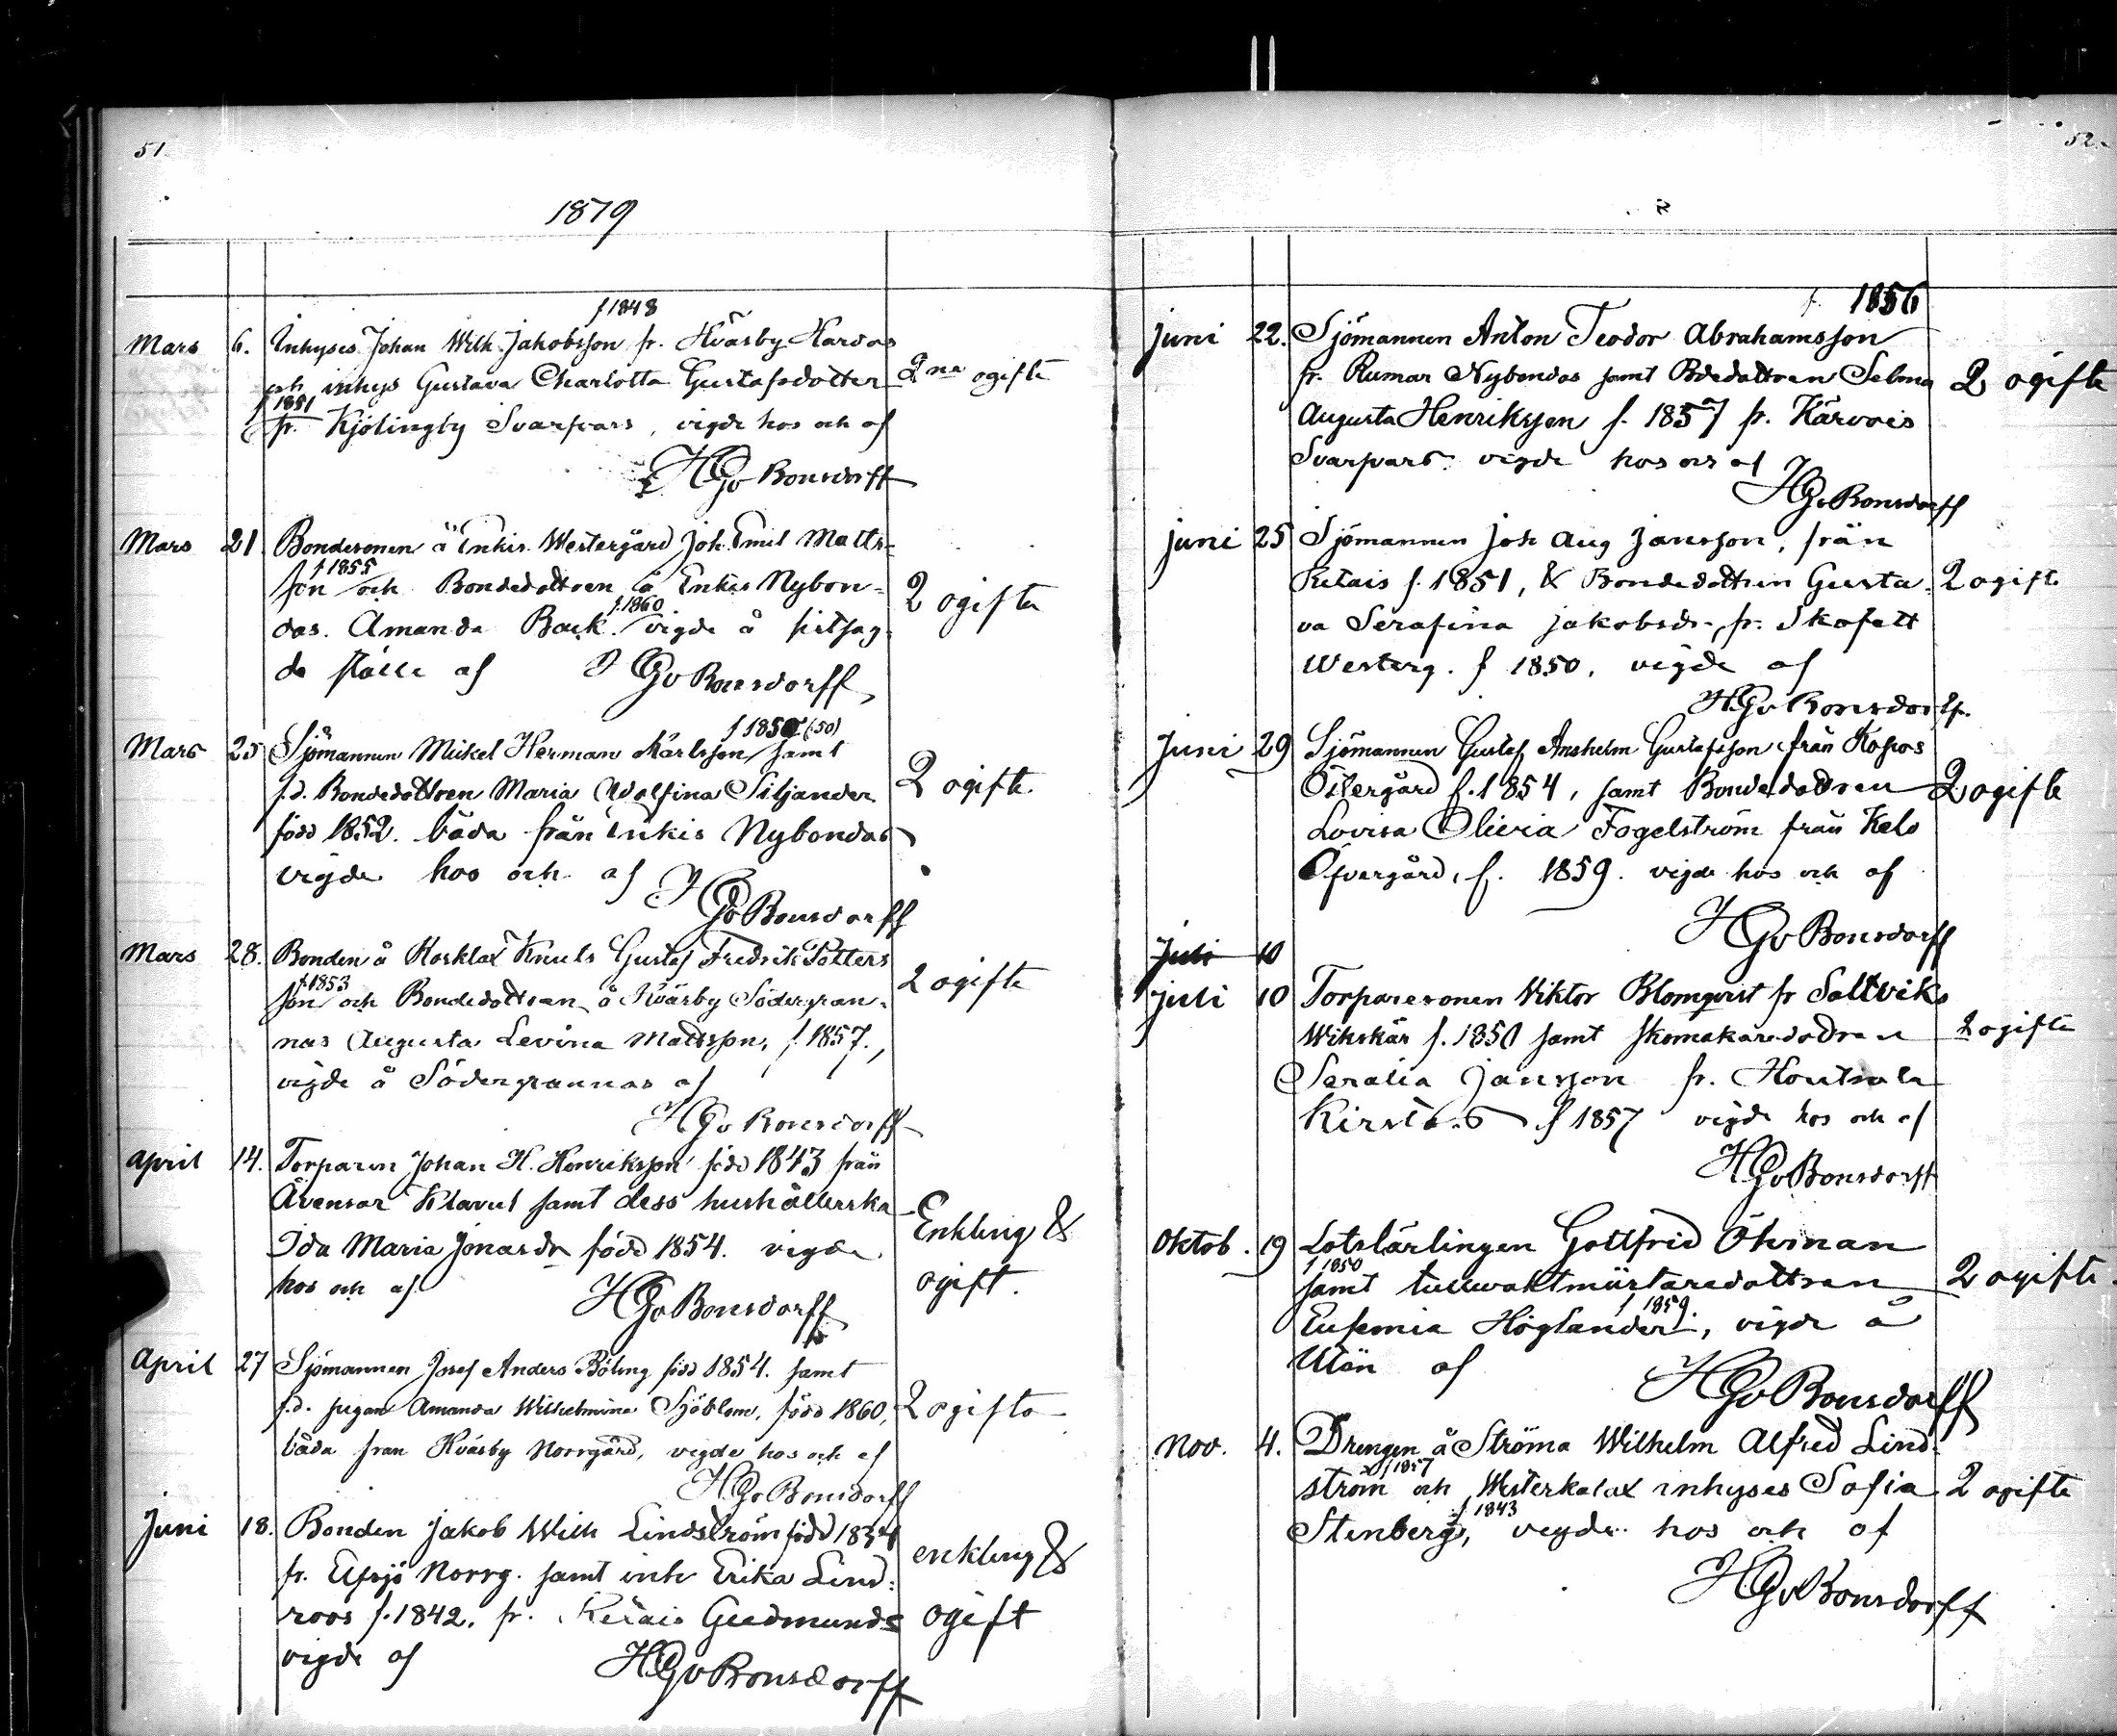 51
1879
f 1848
Mars 6. Inhyses Johan Wilh. Jakobsson fr. Hväsby Hardas
och inhys Gustava Charlotta Gustafsdotter 2ne ogifte
f 1851
fr. Kjölingby Svarfvars, vigde hos och af
HGvBonsdorff
Mars 21 Bondesonen å Enkis Westergård Joh. Emil Matts-
f 1855
son och Bondedottren å Enkis Nybon= 2 ogifta
f. 1860
das. Amanda Back. vigde å sistsag-
da ställe af HGvBonsdorff
f 1850 (50)
Mars 25 Sjömannen Mickel Herman Karlsson samt
f.d. Bondedottren Maria Adolfina Siljander 2 ogifte
född 1852. båda från Enkis Nybondas
vigde hos och af
HGvBonsdorff
Mars 28. Bonden å Rosklax Knuts Gustaf Fredrik Petters
f. 1853
son och Bondedottran å Kväsby Södergran= 2 ogifte
nas Augusta Levina Mattsson, f. 1857.,
vigde å Södergrannas af
HGvBonsdorff
April 14. Torparen Johan H. Henriksson född 1843 från
Åvensar Klavus samt dess hushållerska
Ida Maria Jonasdr född 1854. vigde Enkling &
hos och af ogift.
HGvBonsdorff
April 27 Sjömannen Josef Anders Böling född 1854. samt
f.d. pigan Amanda Wilhelmina Sjöblom, född 1860, 2 ogifta
båda fran Kväsby Norrgård, vigde hos och af
HGvBonsdorff
Juni 18. Bonden Jakob Wilh Lindström född 1834
fr. Elfsjö Norrg. samt inh Erika Lind= enkling &
roos f. 1842. fr. Ketais Gudmunds ogift
vigde af
HGvBonsdorff
52.
f. 1856
juni 22. Sjömannen Anton Teodor Abrahamsson
fr. Rumar Nybondas samt Bdedottren Selma 2 ogifte
Augusta Henriksson f. 1857 fr. Kärvois
Svarpars vigde hos och af
HGvBonsdorff
juni 25 Sjömannen Joh Aug Jansson, från
Retais f. 1851, & Bondedottren Gusta- 2 ogifte
va Serafina Jakobsdr, fr. Skofatt
Westerg. f 1850. vigde af
HGvBonsdorff.
Juni 29 Sjömannen Gustaf Anshelm Gustafsson från Kopos
Östergård f. 1854, samt Bondedottren 2 ogifte
Lovisa Olivia Fogelström från Kelo
Öfvergård, f. 1859. vigde hos och af
HGvBonsdorff
Juli 10
juli 10 Torparesonen Viktor Blomqvist fr Saltviks
Wikskär f. 1850 samt skomakaredottren 2 ogifte
Seralia Jansson fr. Houtsala
Kirstas f 1857 vigde hos och af
HGvBonsdorff
Oktob. 19 Lotslärlingen Gottfrid Öhman
f 1850
samt tullvaktmästaredottren 2 ogifte.
f 1859.
Eufemia Höglander, vigde å
Utön af
HGvBonsdorff
Nov. 4. Drengen å Ströma Wilhelm Alfred Lind-
f 1857
ström och Westerkalax inhyses Sofia 2 ogifte
f 1843
Stenberg, vigde hos och af
HGvBonsdorff